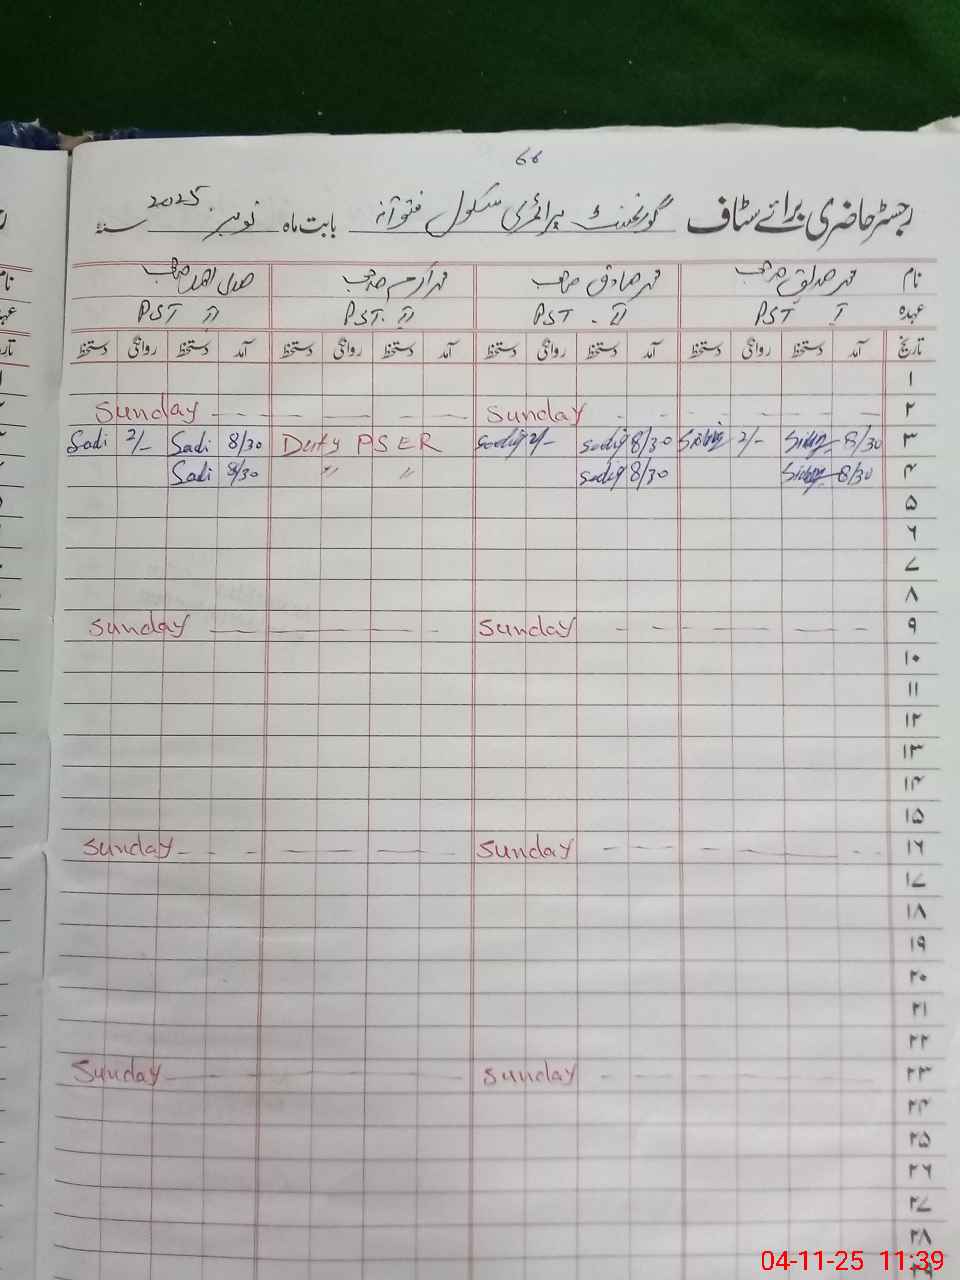 66
رجسٹر حاضری برائے سٹاف گورنمنٹ پرائمری سکول فتوآنہ بابت ماہ نومبر 2025 سنہ
نام محمد صدیق صاحب محمد صادق صاحب محمد اکرم صاحب
عہدہ PST I PST . II PST. II PST II
تاریخ آمد دستخط روانگی دستخط آمد دستخط روانگی دستخط آمد دستخط روانگی دستخط آمد دستخط روانگی دستخط
۱
Sunday Sunday ۲
Sadi 2/- Sadi 8/30 Duty PSER Sadiq 2/- Sadiq 8/30 2/- 8/30 ۳
Sadi 8/30 〃 〃 Sadiq 8/30 8/30 ۴
۵
۶
۷
۸
Sunday Sunday ۹
۱۰
۱۱
۱۲
۱۳
۱۴
۱۵
Sunday Sunday ۱۶
۱۷
۱۸
۱۹
۲۰
۲۱
۲۲
Sunday Sunday ۲۳
۲۴
۲۵
۲۶
۲۷
۲۸
04-11-25 11:39